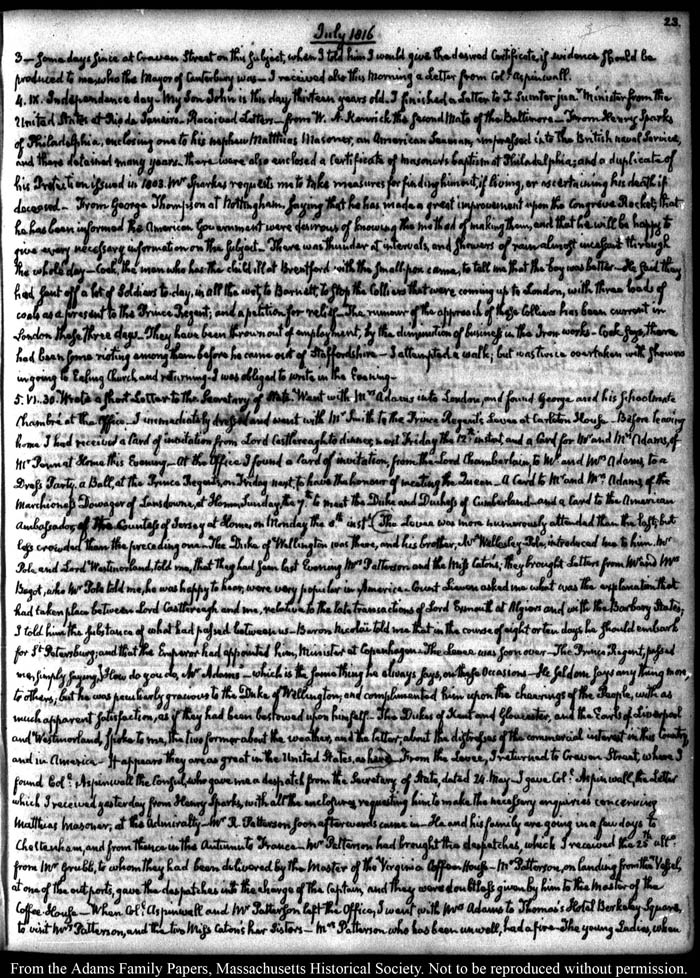 23.
July 1816
3 — some days since at Craven Street on this subject, when I told him I would give the desired Certificate, if evidence should be
produced to me, who the Mayor of Canterbury was — I received also this Morning a Letter from Coll. Aspinwall.
4. IX. Independence day — My Son John is this day thirteen years old. I finished a Letter to T. Sumter junr. Minister from the
United States at Rio de Janeiro. Received Letters — from W. A. Kenrick the Second Mate of the Baltimore — From Henry Sparks
of Philadelphia, enclosing one to his nephew Matthias Masoner, an American Seaman, impressed into the British naval Service,
and there detained many years. There were also enclosed a certificate of Masoner's baptism at Philadelphia; and a duplicate of
his Protection issued in 1803. Mr Sparks requests me to take measures for finding him out, if living, or ascertaining his death if
deceased — From George Thompson at Nottingham, saying that he has made a great improvement upon the Congreve Rocket; that
he has been informed the American Government were desirous of knowing the method of making them, and that he will be happy to
give every necessary information on the Subject — There was thunder at intervals, and Showers of rain almost incessant through
the whole day — Cook, the man who has the child ill at Brentford with the Small-pox came, to tell me that the boy was better — He said they
had sent off a lot of Soldiers to-day, in all the wet, to Barnett, to stop the Colliers that were coming up to London, with three loads of
coals as a present to the Prince Regent, and a petition for relief — The rumour of the approach of these Colliers has been current in
London these three days. They have been thrown out of employment, by the diminution of business in the Iron works — Cook says, there
had been some rioting among them before he came out of Staffordshire — I attempted a walk; but was twice overtaken with Showers
in going to Ealing Church and returning — I was obliged to write in the Evening —
5. VI. 30. Wrote a short Letter to the Secretary of State. Went with Mrs Adams into London, and found George and his Schoolmate
Chambré at the Office — I immediately dressed and went with Mr Smith to the Prince Regent's Levee at Carlton House — Before leaving
home I had received a Card of invitation from Lord Castlereagh to dinner, next Friday the 12th instant, and a Card for Mr and Mrs Adams, of
Mr Penn at Home this Evening — At the Office I found a Card of invitation, from the Lord Chamberlain, to Mr and Mrs Adams, to a
Dress Party, a Ball, at the Prince Regent's, on Friday next, to have the honour of meeting the Queen — A Card to Mr and Mrs Adams, of the
Marchioness Dowager of Lansdowne, at Home, Sunday, the 7th to meet the Duke and Duchess of Cumberland — and a Card to the American
Ambassador, of the Countess of Jersey at Home, on Monday the 8th instt. (The Levee was more numerously attended than the last; but
less crowded than the preceding one — The Duke of Wellington was there, and his brother, Mr Wellesley-Pole, introduced me to him. Mr
Pole and Lord Westmorland, told me, that they had seen last Evening Mrs Patterson and the Miss Catons; they brought Letters from Mr and Mrs
Bagot, who Mr Pole told me, he was happy to hear, were very popular in America — Count Lieven asked me what was the explanation that
had taken place between Lord Castlereagh and me, relative to the late transactions of Lord Exmouth at Algiers and with the Barbary States,
I told him the substance of what had passed between us — Baron Nicolai told me that in the course of eight or ten days he should embark
for St Petersburg; and that the Emperor had appointed him, Minister at Copenhagen — The Levee was soon over — The Prince Regent, passed
me, simply saying, "How do you do, Mr Adams — which is the same thing he always says, on these Occasions — He seldom says any thing more
to others, but he was peculiarly gracious to the Duke of Wellington, and complimented him upon the cheerings of the People, with as
much apparent satisfaction, as if they had been bestowed upon himself — The Dukes of Kent and Gloucester, and the Earls of Liverpool
and Westmorland, spoke to me, the two former about the weather, and the latter, about the distresses of the commercial interest in this Country,
and in America — It appears they are as great in the United States, as here) From the Levee, I returned to Craven Street, where I
found Colo. Aspinwall the Consul, who gave me a despatch from the Secretary of State, dated 24. May — I gave Colo. Aspinwall, the Letter
which I received yesterday from Henry Sparks, with all the enclosures, requesting him to make the necessary enquiries concerning
Matthias Masoner, at the Admiralty — Mr R. Patterson soon afterwards came in — He and his family are going in a few days to
Cheltenham, and from thence in the Autumn to France — Mr Patterson had brought the despatches, which I received the 28th ulto.
from Mr Grubb, to whom they had been delivered by the Master of the Virginia Coffee-House — Mr Patterson, on landing from the Vessel,
at one of the out ports, gave the despatches into the charge of the Captain, and they were doubtless given by him to the Master of the
Coffee-House — When Col. Aspinwall and Mr Patterson left the Office, I went with Mrs Adams to Thomas's Hotel Berkeley-Square,
to visit Mrs Patterson, and the two Miss Catons her Sisters — Mrs Patterson who has been unwell, had a fire — The young Ladies, when
From the Adams Family Papers, Massachusetts Historical Society. Not to be reproduced without permission